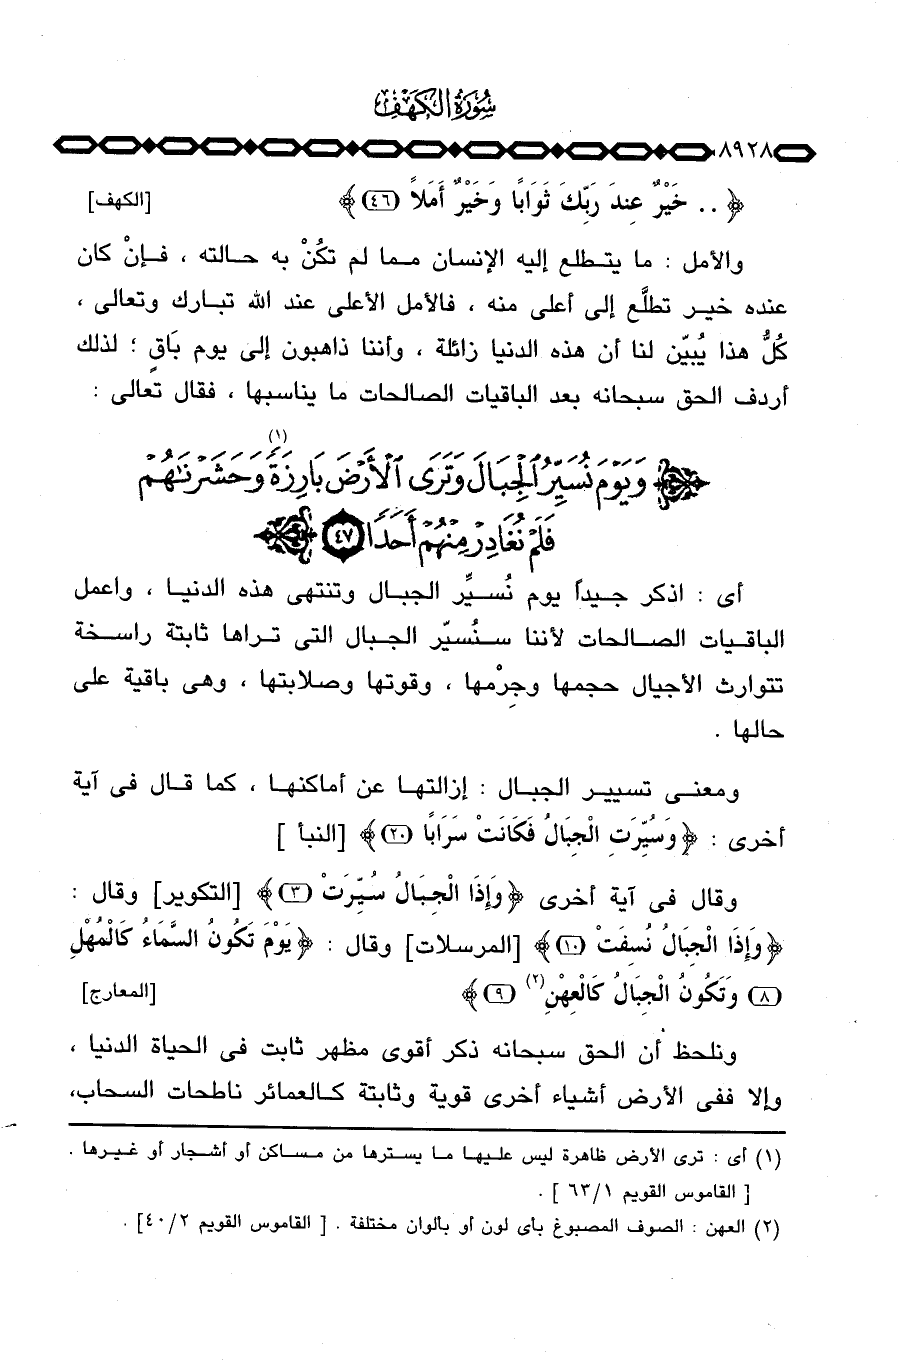 سُورَةُ الكَهْفِ
٨٩٢٨
﴿ .. خَيْرٌ عِندَ رَبِّكَ ثَوَابًا وَخَيْرٌ أَمَلاً (٤٦) ﴾ [الكهف]
والأمل : ما يتطلع إليه الإنسان مما لم تكُنْ به حالته ، فإنْ كان
عنده خير تطلَّع إلى أعلى منه ، فالأمل الأعلى عند الله تبارك وتعالى ،
كُلُّ هذا يُبيّن لنا أن هذه الدنيا زائلة ، وأننا ذاهبون إلى يوم بَاقٍ ؛ لذلك
أردف الحق سبحانه بعد الباقيات الصالحات ما يناسبها ، فقال تعالى :
﴿ وَيَوْمَ نُسَيِّرُ ٱلْجِبَالَ وَتَرَى ٱلْأَرْضَ بَارِزَةً (١) وَحَشَرْنَٰهُمْ
فَلَمْ نُغَادِرْ مِنْهُمْ أَحَدًا (٤٧) ﴾
أى : اذكر جيداً يوم نُسيِّر الجبال وتنتهى هذه الدنيا ، واعمل
الباقيات الصالحات لأننا سنُسيّر الجبال التى تراها ثابتة راسخة
تتوارث الأجيال حجمها وجِرْمها ، وقوتها وصلابتها ، وهى باقية على
حالها .
ومعنى تسيير الجبال : إزالتها عن أماكنها ، كما قال فى آية
أخرى : ﴿ وَسُيِّرَتِ الْجِبَالُ فَكَانَتْ سَرَابًا (٢٠) ﴾ [النبأ ]
وقال فى آية أخرى ﴿ وَإِذَا الْجِبَالُ سُيِّرَتْ (٣) ﴾ [التكوير] وقال :
﴿ وَإِذَا الْجِبَالُ نُسِفَتْ (١٠) ﴾ [المرسلات] وقال : ﴿ يَوْمَ تَكُونُ السَّمَاءُ كَالْمُهْلِ
(٨) وَتَكُونُ الْجِبَالُ كَالْعِهْنِ (٢) (٩) ﴾ [المعارج]
ونلحظ أن الحق سبحانه ذكر أقوى مظهر ثابت فى الحياة الدنيا ،
وإلا ففى الأرض أشياء أخرى قوية وثابتة كالعمائر ناطحات السحاب،
(١) أى : ترى الأرض ظاهرة ليس عليها ما يسترها من مساكن أو أشجار أو غيرها .
[ القاموس القويم ٦٣/١ ] .
(٢) العهن : الصوف المصبوغ بأى لون أو بألوان مختلفة . [ القاموس القويم ٤٠/٢] .